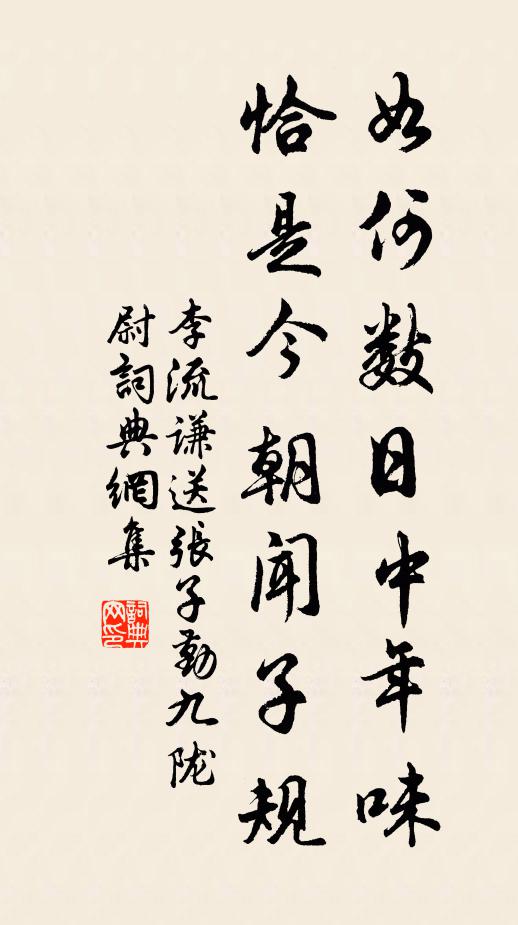 如何数日中年味
恰是今朝聞子規
李流谦送張子勤九陇
尉詞典網集
詞典网印